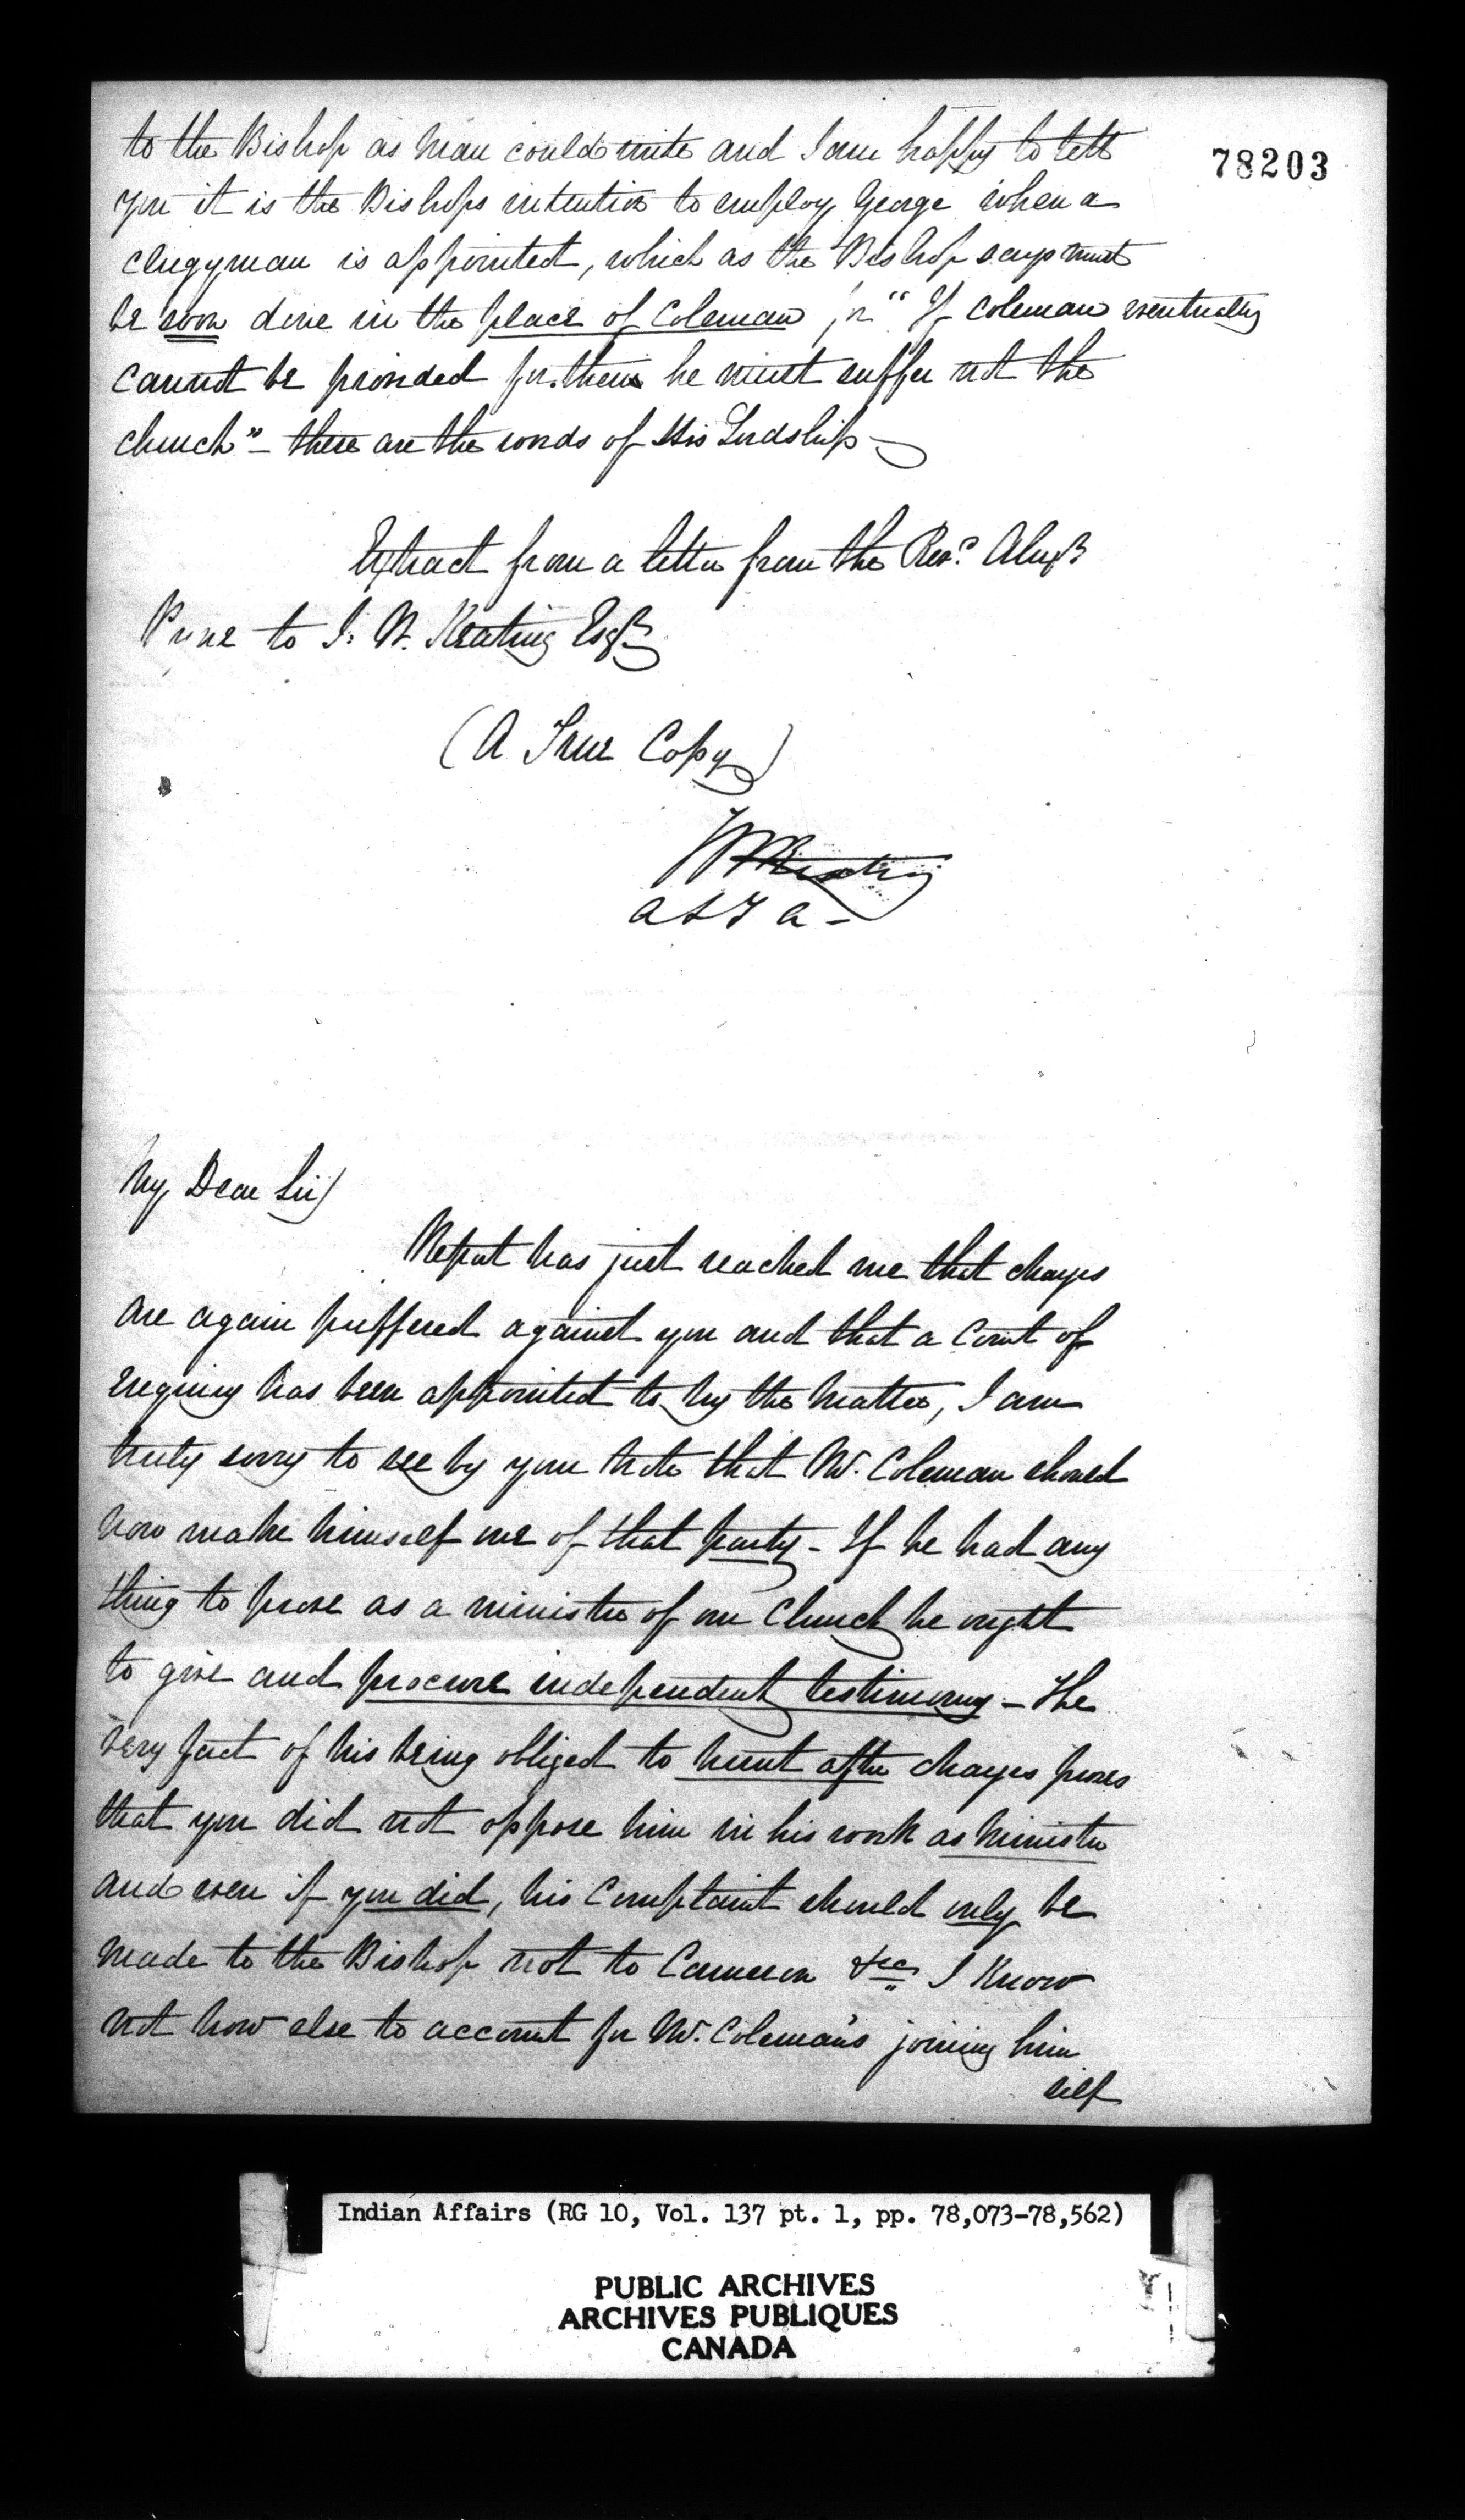 78203
to the Bishop as man could write and I am happy to tell
you it is the Bishops intention to employ George when a
clergyman is appointed, which as the Bishop says must
be soon done in the place of Coleman for "If Coleman eventually
cannot be provided for then he must suffer not the
church" - these are the words of His Lordship -
Extract from a letter from the Revd. Alexr
Pyne to J. W. Keating Esqr
(A True Copy)
JWKeating
a S I a -
My Dear Sir/
Report has just reached me that charges
are again preffered against you and that a Court of
enquiry has been appointed to try the matter, I am
truly sorry to see by your note that Mr. Coleman should
now make himself one of that party - If he had any
thing to prove as a minister of our Church he ought
to give and procure independent testimony - The
very fact of his being obliged to hunt after charges proves
that you did not oppose him in his work as Minister
and even if you did, his Complaint should only be
made to the Bishop not to Cameron &ca I know
not how else to account for Mr. Coleman's joining him
self
Indian Affairs (RG 10, Vol. 137 pt. 1, pp. 78,073-78,562)
PUBLIC ARCHIVES
ARCHIVES PUBLIQUES
CANADA